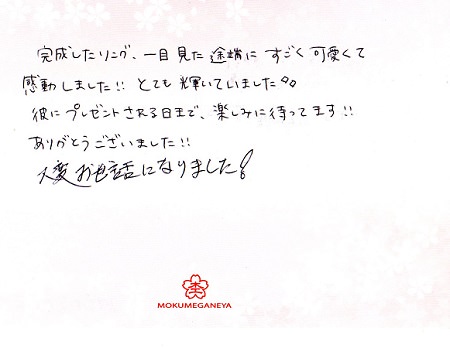 完成したリング、一目見た途端に すごく可愛くて
感動しました!! とても輝いていました
彼にプレゼントされる日まで、楽しみに待ってます!!
ありがとうございました!!
大変お世話になりました!
MOKUMEGANEYA